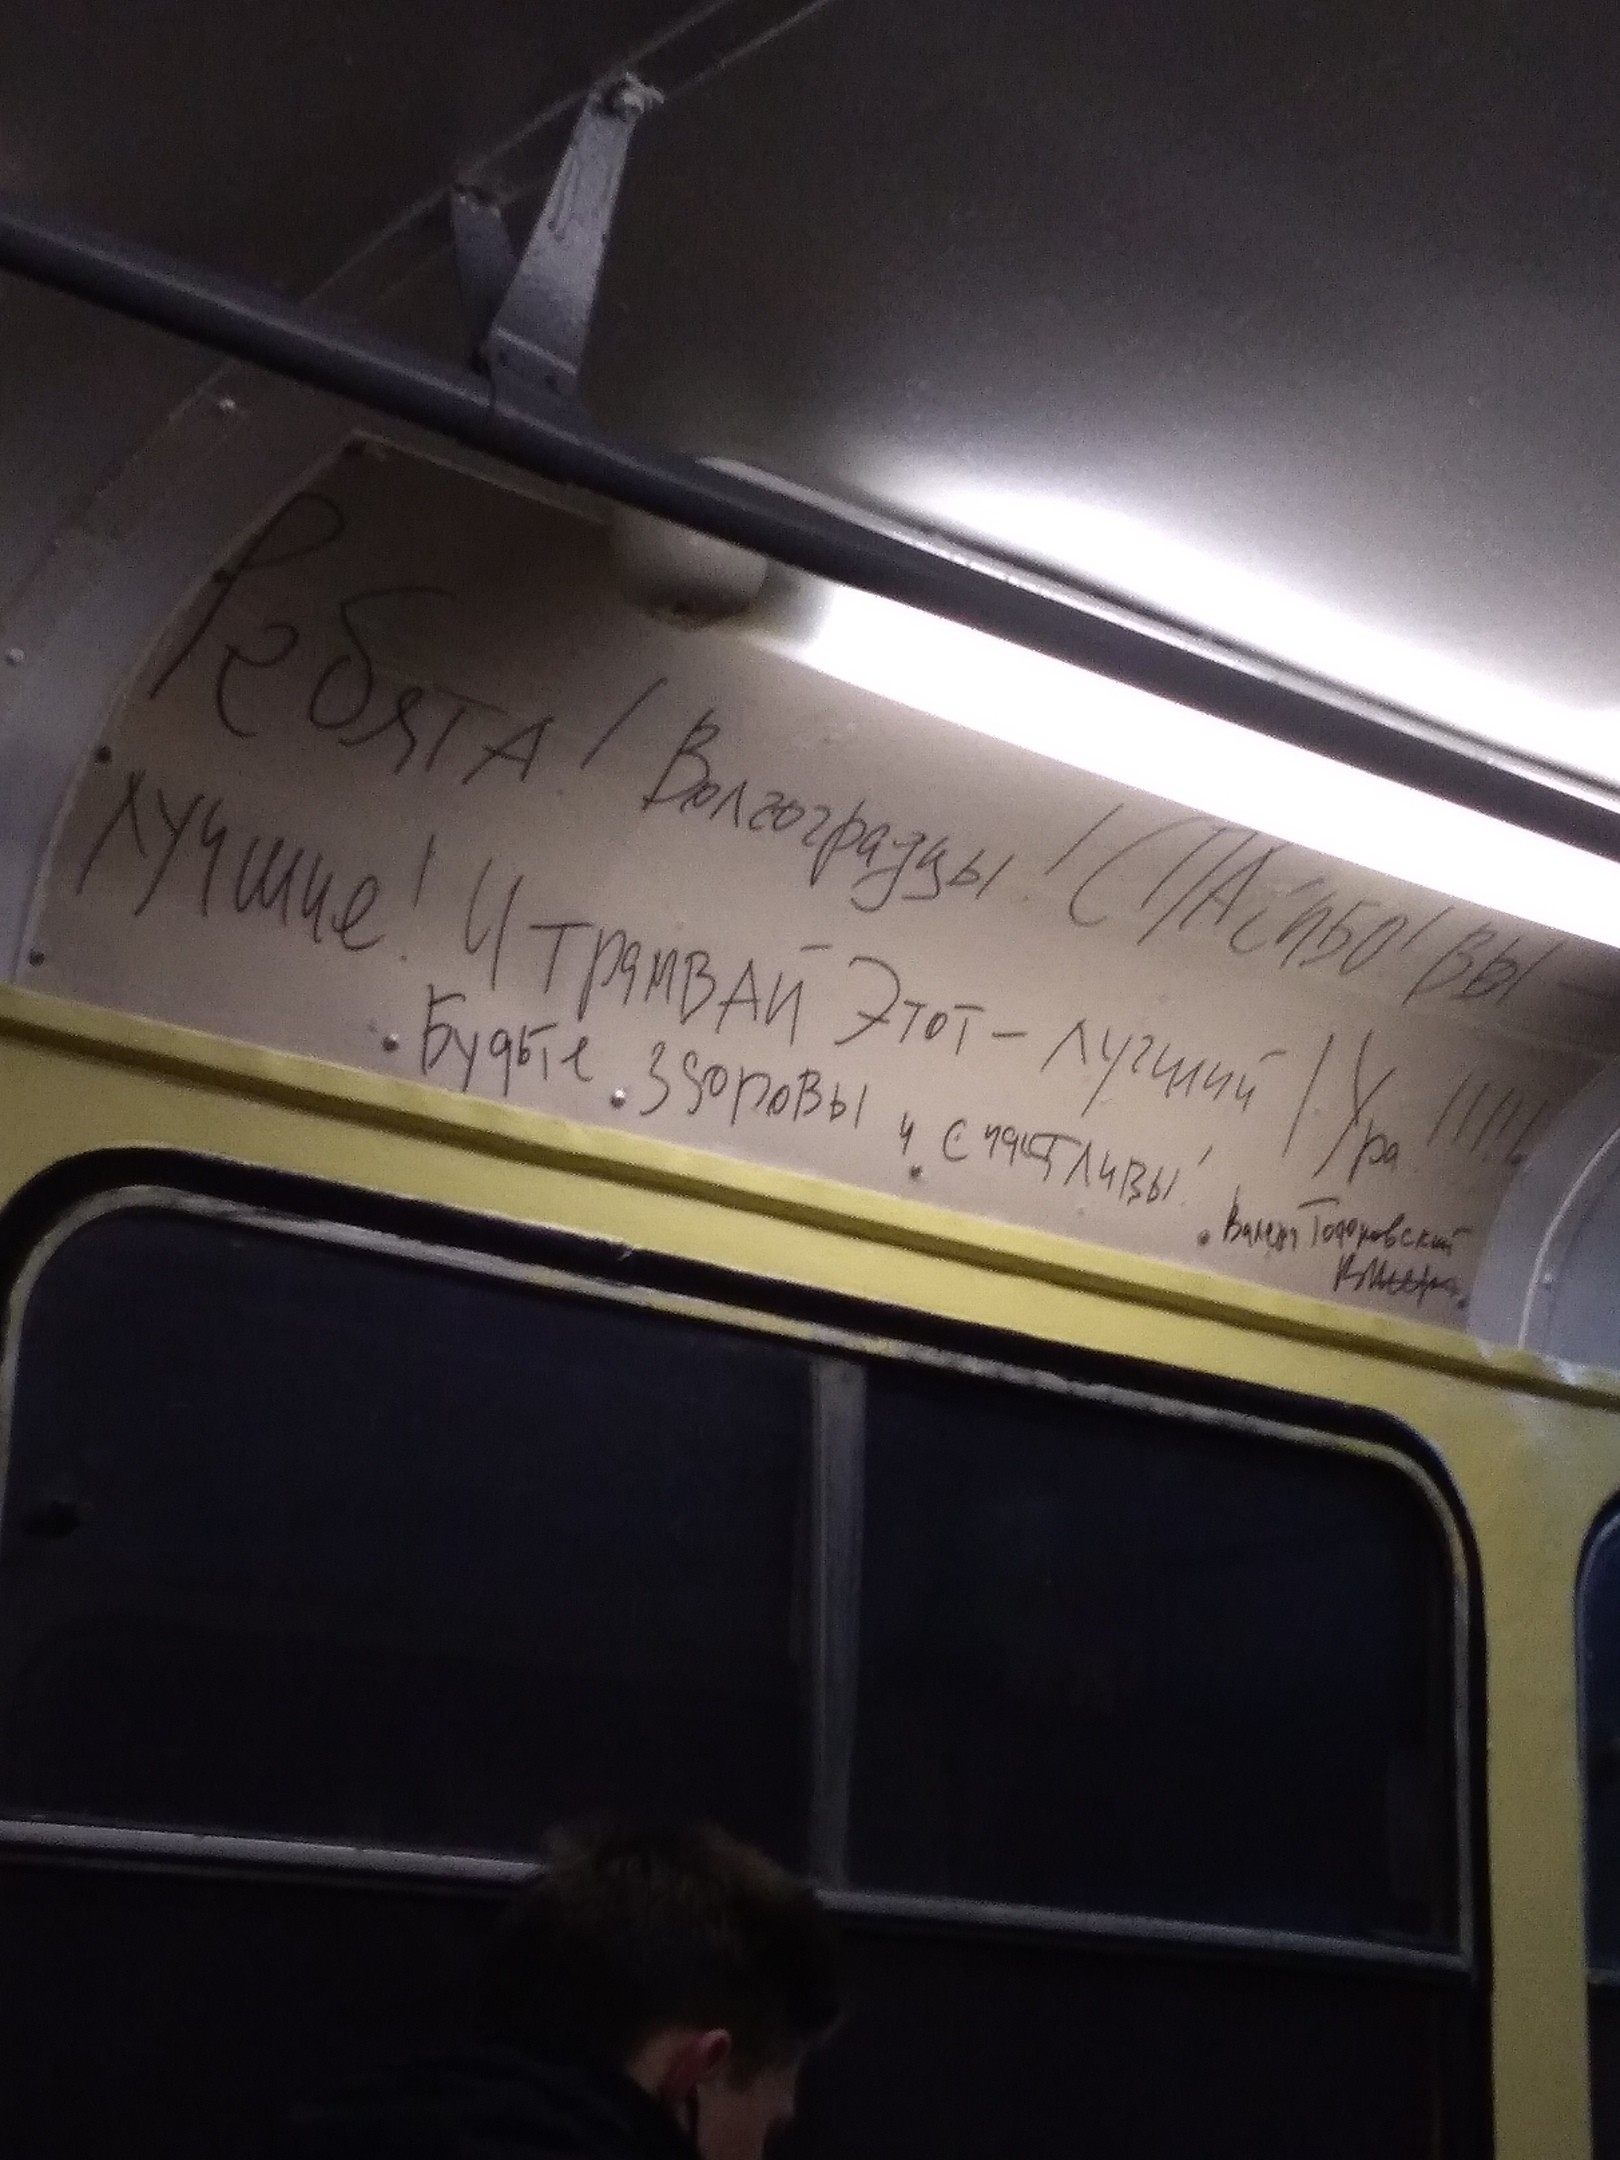 Ребята! Волгоградцы! СПАСИБО! ВЫ —
лучшие! И трамвай этот — лучший! Ура!!!!!
Будьте здоровы и счастливы!
Валерий Тодоровский